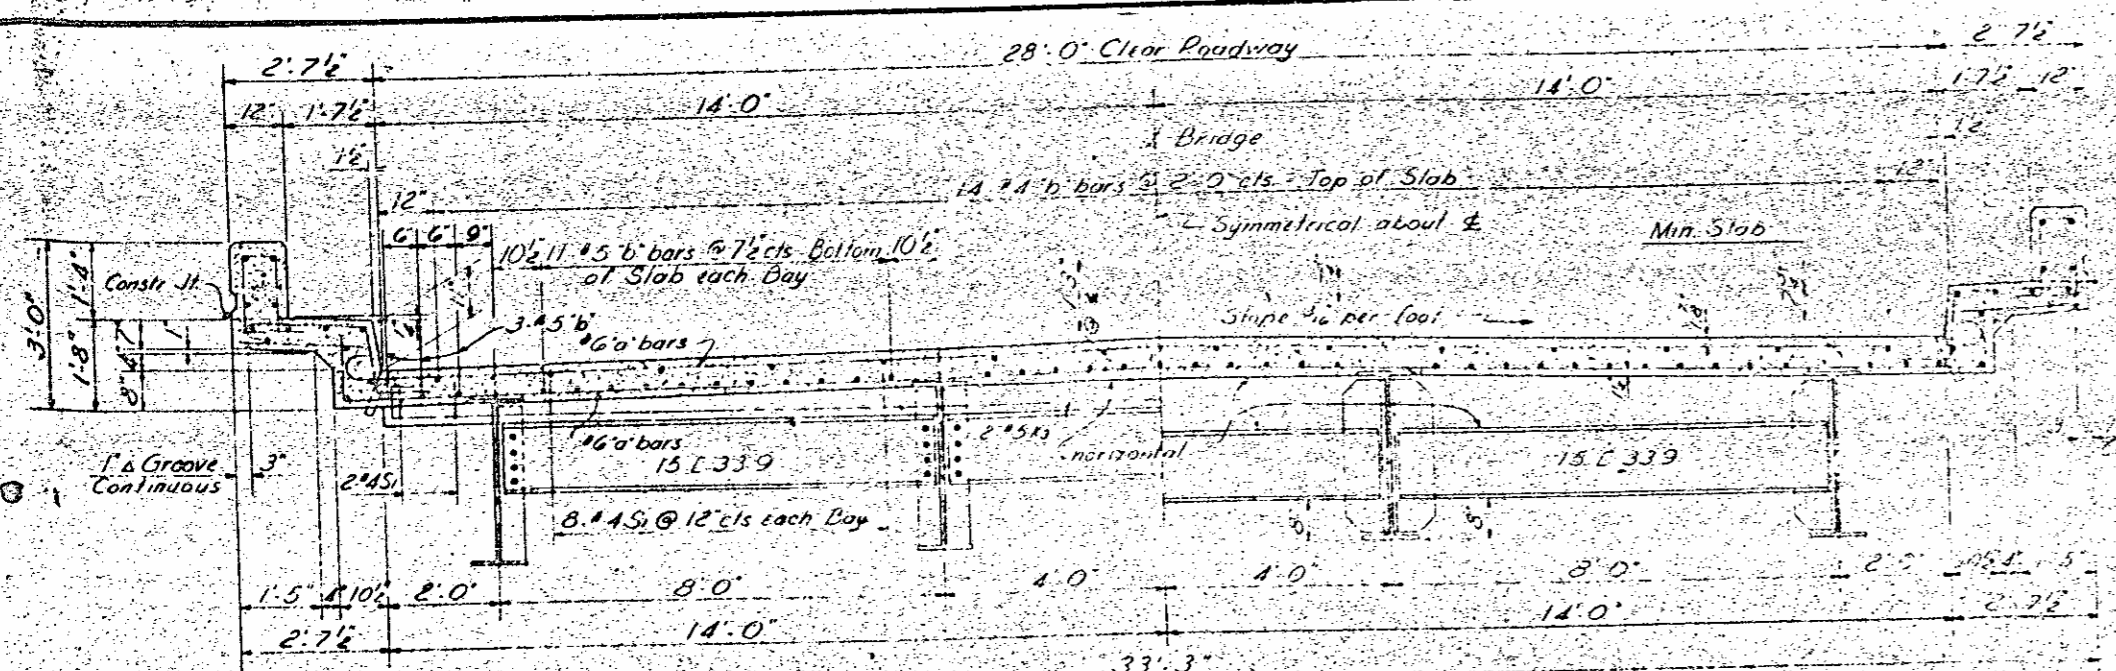 2'-7½"
28'-0" Clear Roadway
2'-7½"
12"
1'-7½"
14'-0"
14'-0"
1'-7½"
12"
1½"
Bridge
1½"
12"
14 #4 "b" bars @ 2'-0 cts. - Top of Slab
12"
6" 6" 9"
Symmetrical about ℄
Min. Slab
10½" 11 #5 "b" bars @ 7½" cts. Bottom 10½"
of Slab each Bay
Constr. Jt.
3'-0"
1'-4"
1'-8"
8" 4" 7"
3-#5 "b"
#6 "a" bars
Slope 3/16 per foot
#6 "a" bars
15 [ 33.9
horizontal
15 [ 33.9
1" Δ Groove
Continuous
3"
2-#4 S₁
8-#4 S₁ @ 12" cts each Bay
1'-5" 4" 10½" 2'-0" 8'-0" 4'-0" 4'-0" 8'-0" 2'-0"
2'-7½"
14'-0"
14'-0"
2'-7½"
33'-3"